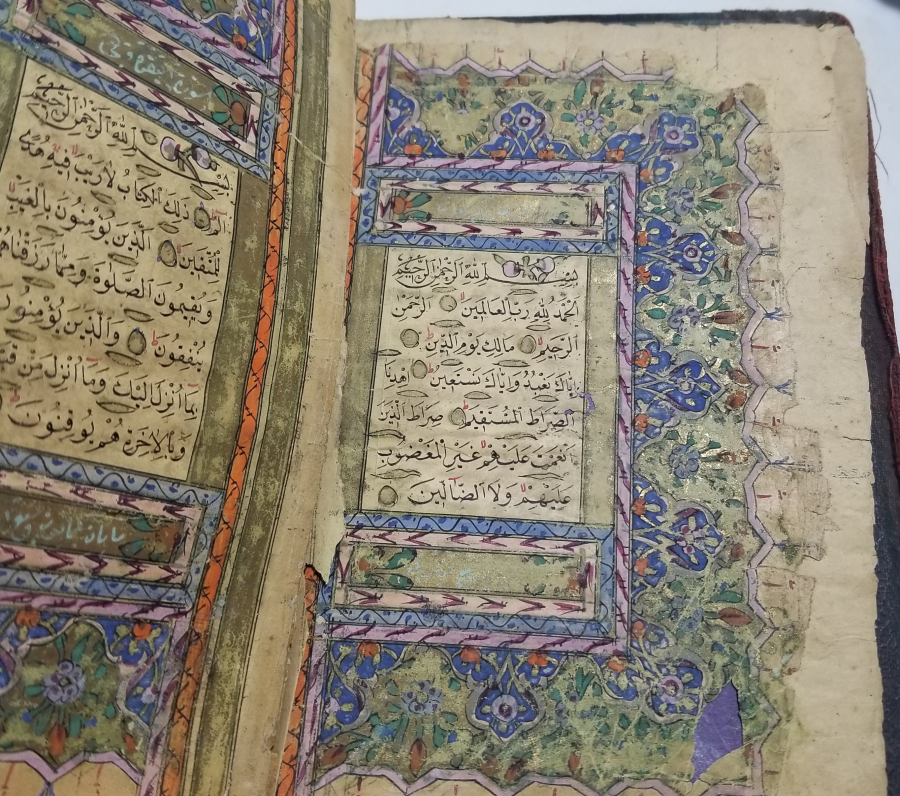 بِسْمِ اللهِ الرَّحْمٰنِ الرَّحِيمِ
اَلْحَمْدُ لِلّٰهِ رَبِّ الْعَالَمِينَ الرَّحْمٰنِ
الرَّحِيمِ مَالِكِ يَوْمِ الدِّينِ
اِيَّاكَ نَعْبُدُ وَاِيَّاكَ نَسْتَعِينُ اِهْدِنَا
الصِّرَاطَ الْمُسْتَقِيمَ صِرَاطَ الَّذِينَ
اَنْعَمْتَ عَلَيْهِمْ غَيْرِ الْمَغْضُوبِ
عَلَيْهِمْ وَلَا الضَّالِّينَ
بِسْمِ اللهِ الرَّحْمٰنِ الرَّحِيمِ
الٓمٓ ذٰلِكَ الْكِتَابُ لَا رَيْبَ فِيهِ هُدًى
لِلْمُتَّقِينَ الَّذِينَ يُؤْمِنُونَ بِالْغَيْبِ
وَيُقِيمُونَ الصَّلٰوةَ وَمِمَّا رَزَقْنَاهُمْ
يُنْفِقُونَ وَالَّذِينَ يُؤْمِنُونَ
بِمَا اُنْزِلَ اِلَيْكَ وَمَا اُنْزِلَ مِنْ
وَبِالْاٰخِرَةِ هُمْ يُوقِنُونَ